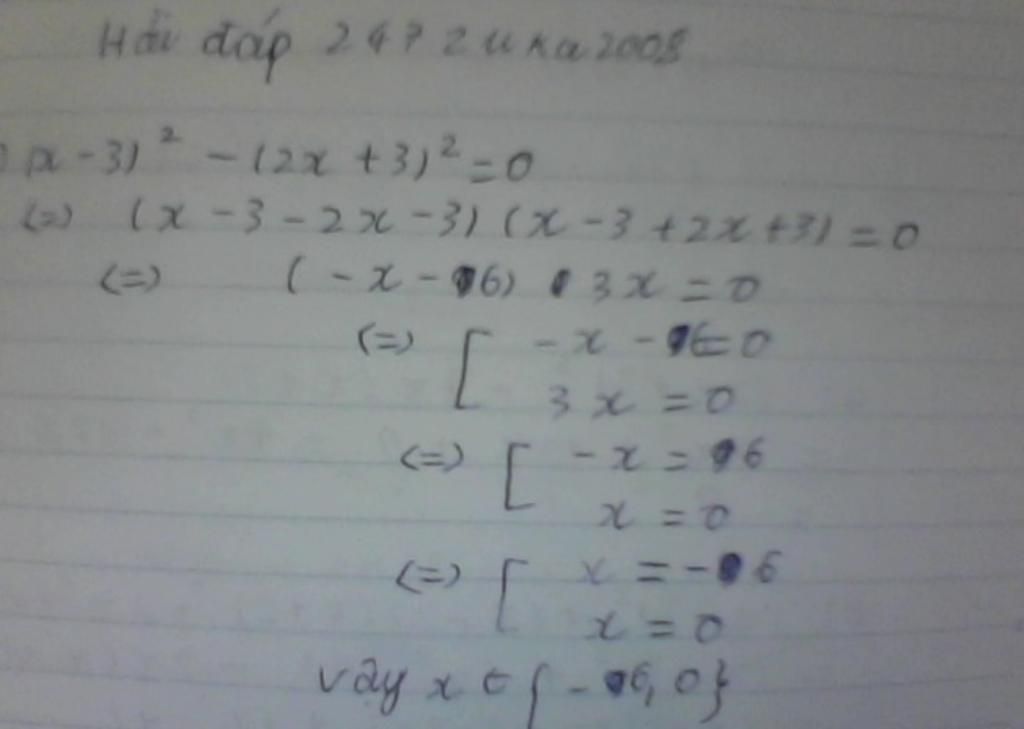 Hỏi đáp 247 zuka2008
(x - 3)² - (2x + 3)² = 0
(=) (x - 3 - 2x - 3) (x - 3 + 2x + 3) = 0
(=) (-x - 6) 3x = 0
(=) [ -x - 6 = 0
3x = 0
(=) [ -x = 6
x = 0
(=) [ x = -6
x = 0
Vậy x ∈ {-6, 0}